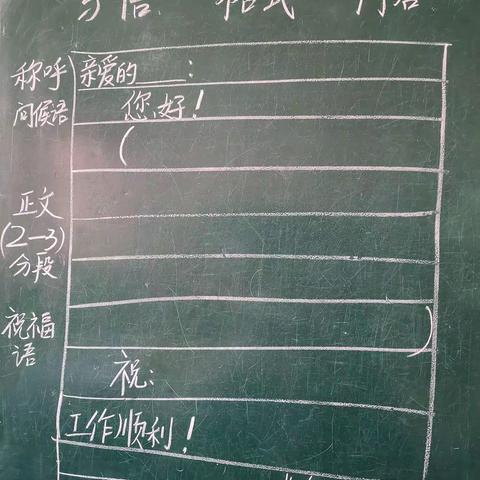 写信 格式 内容
称呼 亲爱的____:
问候语 您好!
(
正文
(2-3)
分段
)
祝福语
祝:
工作顺利!